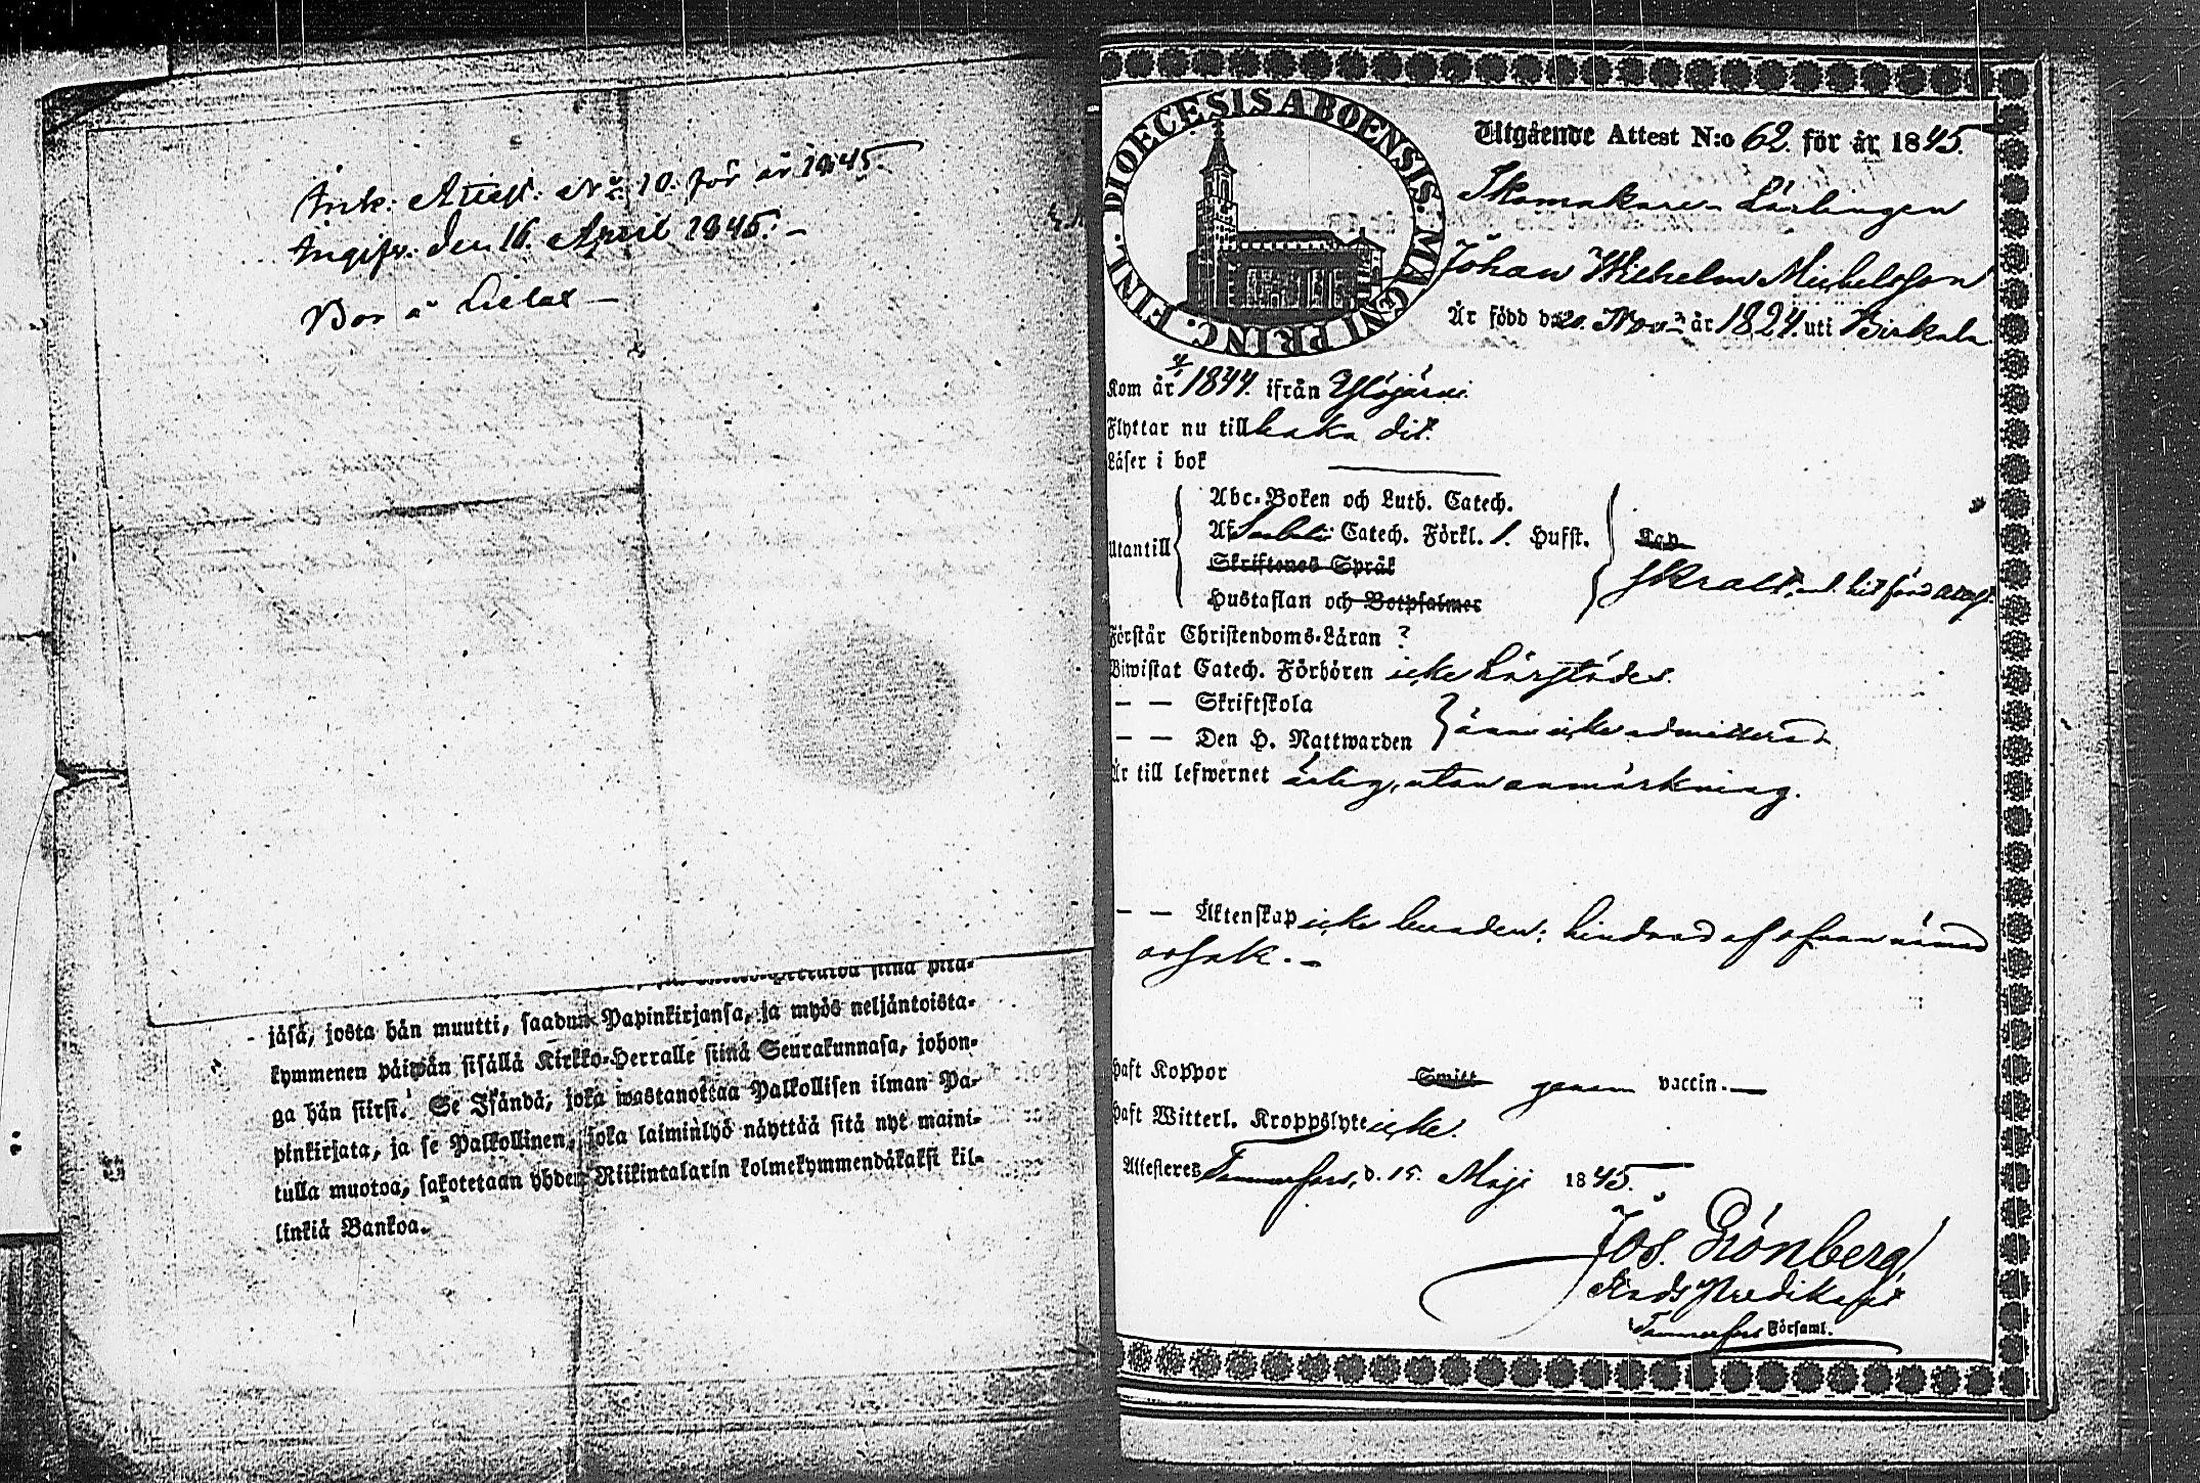 Ank: Attest: No 10. för år 1845.
Angifv: den 16. April 1845. –
Bor å Lielax –
jäsä, josta hän muutti, saadun Papinkirjansa, ja myös neljäntoista-
kymmenen päiwän sisällä Kirkko-Herralle siinä Seurakunnasa, johon-
ga hän siirsi. Se Isändä, joka wastanottaa Palkollisen ilman Pa-
pinkirjata, ja se Palkollinen, joka laiminlyö näyttää sitä nyt maini-
tulla muotoa, sakotetaan yhden Riikintalarin kolmekymmendäkaksi kil-
linkiä Bankoa.
DIOECESIS ABOENSIS. MAGNI PRINC. FINL.
Utgående Attest N:o 62. för år 1845.
Skomakare-Lärlingen
Johan Wilhelm Michelsson
Är född d. 20. Nov. år 1824. uti Birkala
Kom år 1844. ifrån Ylöjärvi
Flyttar nu tillbaka dit.
Läser i bok
Utantill
Abc-Boken och Luth. Catech.
Af Catech. Förkl. 1. Hufst.
Skriftenes Språk
Hustaflan och Botpsalmer
Förstår Christendoms-Läran ?
Biwistat Catech. Förhören icke härstädes.
— — Skriftskola
— — Den H. Nattwarden
ännu icke admitterad
Är till lefwernet ärlig, utan anmärkning.
— — Äktenskap icke bunden; hindrad af ofvannämnd
orsak. –
Haft Koppor Smitt genom vaccin. —
Haft Witterl. Kroppslyte icke.
Attesteres Tammerfors, d. 15. Maji 1845.
Jos. Grönberg,
StadsPredikant
Tammerfors Församl.